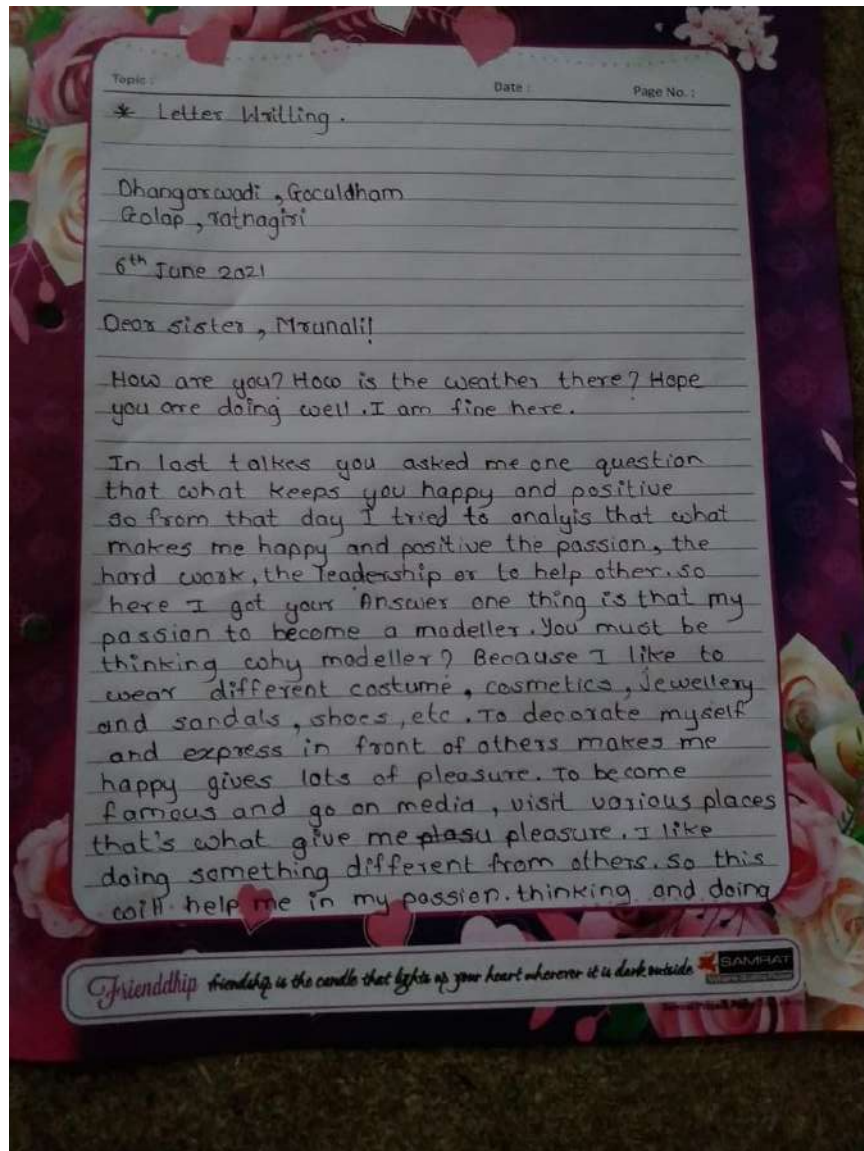 Topic :
Date :
Page No. :
* Letter Writting.
Dhangarwadi, Gocaldham
Golap, ratnagiri
6th June 2021
Dear sister, Mrunali!
How are you? How is the weather there? Hope
you are doing well. I am fine here.
In last talkes you asked me one question
that what keeps you happy and positive
so from that day I tried to analyis that what
makes me happy and positive the passion, the
hard work, the leadership or to help other. so
here I got your Answer one thing is that my
passion to become a modeller. You must be
thinking why modeller? Because I like to
wear different costume, cosmetics, Jewellery
and sandals, shoes, etc. To decorate myself
and express in front of others makes me
happy gives lots of pleasure. To become
famous and go on media, visit various places
that's what give me plasu pleasure. I like
doing something different from others. so this
will help me in my passion. thinking and doing
Frienddhip friendship is the candle that lights up your heart wherever it is dark outside SAMRAT